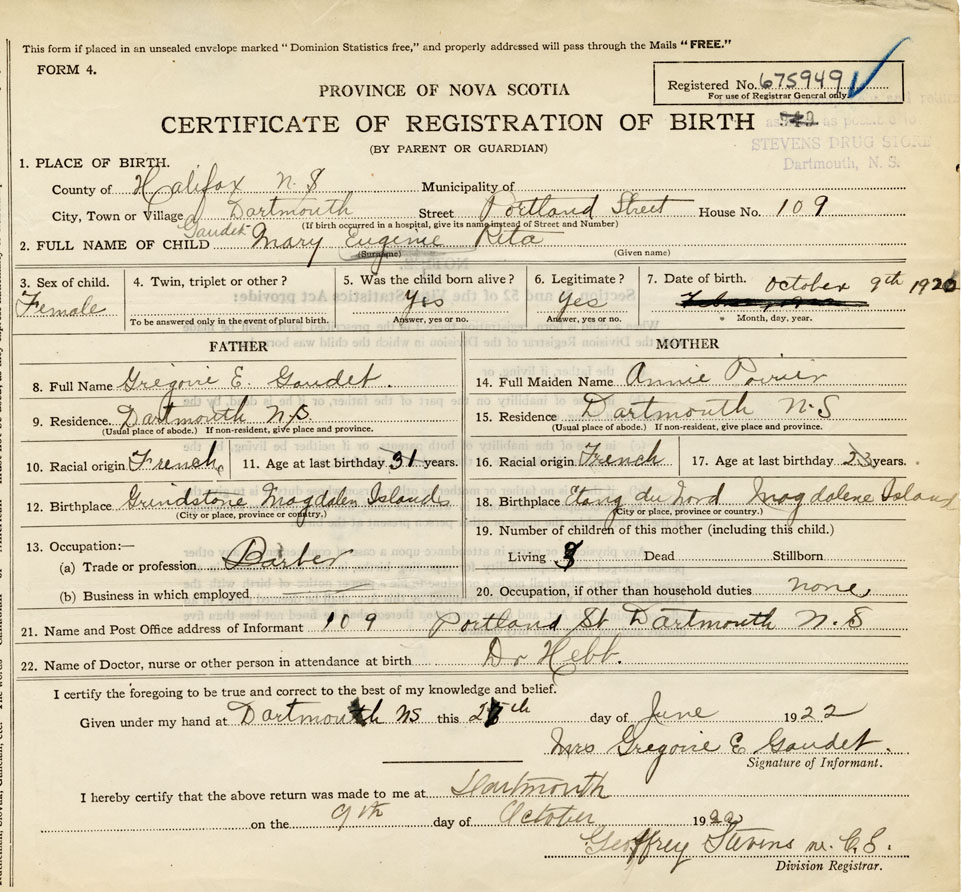 This form if placed in an unsealed envelope marked "Dominion Statistics free," and properly addressed will pass through the Mails "FREE."
FORM 4.
Registered No. 675949
For use of Registrar General only.
PROVINCE OF NOVA SCOTIA
CERTIFICATE OF REGISTRATION OF BIRTH
(BY PARENT OR GUARDIAN)
STEVENS DRUG STORE
Dartmouth, N. S.
1. PLACE OF BIRTH.
County of Halifax N. S Municipality of
City, Town or Village Dartmouth Street Portland Street House No. 109
(If birth occurred in a hospital, give its name instead of Street and Number)
2. FULL NAME OF CHILD Gaudet Mary Eugenie Rita
(Surname) (Given name)
3. Sex of child. Female
4. Twin, triplet or other?
To be answered only in the event of plural birth.
5. Was the child born alive? Yes
Answer, yes or no.
6. Legitimate? Yes
Answer, yes or no.
7. Date of birth. October 9th 1920
Month, day, year.
FATHER
8. Full Name Gregoire E. Gaudet.
9. Residence Dartmouth N.S.
(Usual place of abode.) If non-resident, give place and province.
10. Racial origin French 11. Age at last birthday 31 years.
12. Birthplace Grindstone Magdalen Islands
(City or place, province or country.)
13. Occupation:—
(a) Trade or profession Barber
(b) Business in which employed
MOTHER
14. Full Maiden Name Annie Poirier
15. Residence Dartmouth N-S
(Usual place of abode.) If non-resident, give place and province.
16. Racial origin French 17. Age at last birthday 23 years.
18. Birthplace Etang du Nord Magdalene Island
(City or place, province or country.)
19. Number of children of this mother (including this child.)
Living 3 Dead Stillborn
20. Occupation, if other than household duties none
21. Name and Post Office address of Informant 109 Portland St Dartmouth N.S
22. Name of Doctor, nurse or other person in attendance at birth Dr Hebb.
I certify the foregoing to be true and correct to the best of my knowledge and belief.
Given under my hand at Dartmouth NS this day of June 1922
Mrs Gregoire E Gaudet.
Signature of Informant.
I hereby certify that the above return was made to me at Dartmouth
on the 9th day of October 1922
Geoffrey Stevens
Division Registrar.